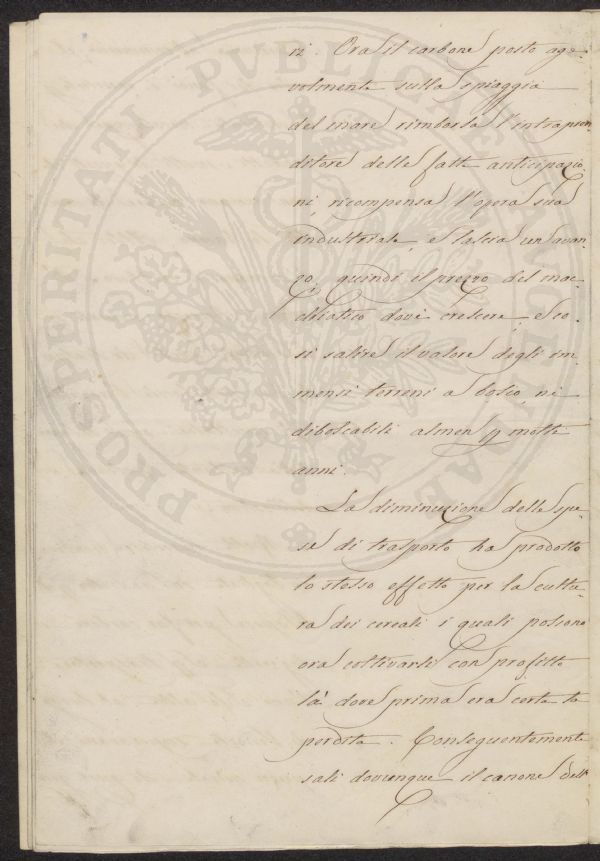 PROSPERITATI PUBLICAE AUGENDAE
ri. Ora il carbone posto age-
volmente sulla spiaggia
del mare rimborsa l'intrapren
ditore delle fatte anticipazio
ni, ricompensa l'opera sua
industriale, e lascia un avan-
zo, quindi il prezzo del mac-
chiatico dovè crescere, e co-
sì salire il valore degli im-
mensi terreni a bosco, ni
diboscabili almen p molti
anni.
La diminuzione delle spe-
se di trasporto ha prodotto
lo stesso effetto per la cultu-
ra dei cereali i quali possono
ora coltivarsi con profitto
là dove prima era certa la
perdita. Conseguentemente
salì dovunque il canone dell'